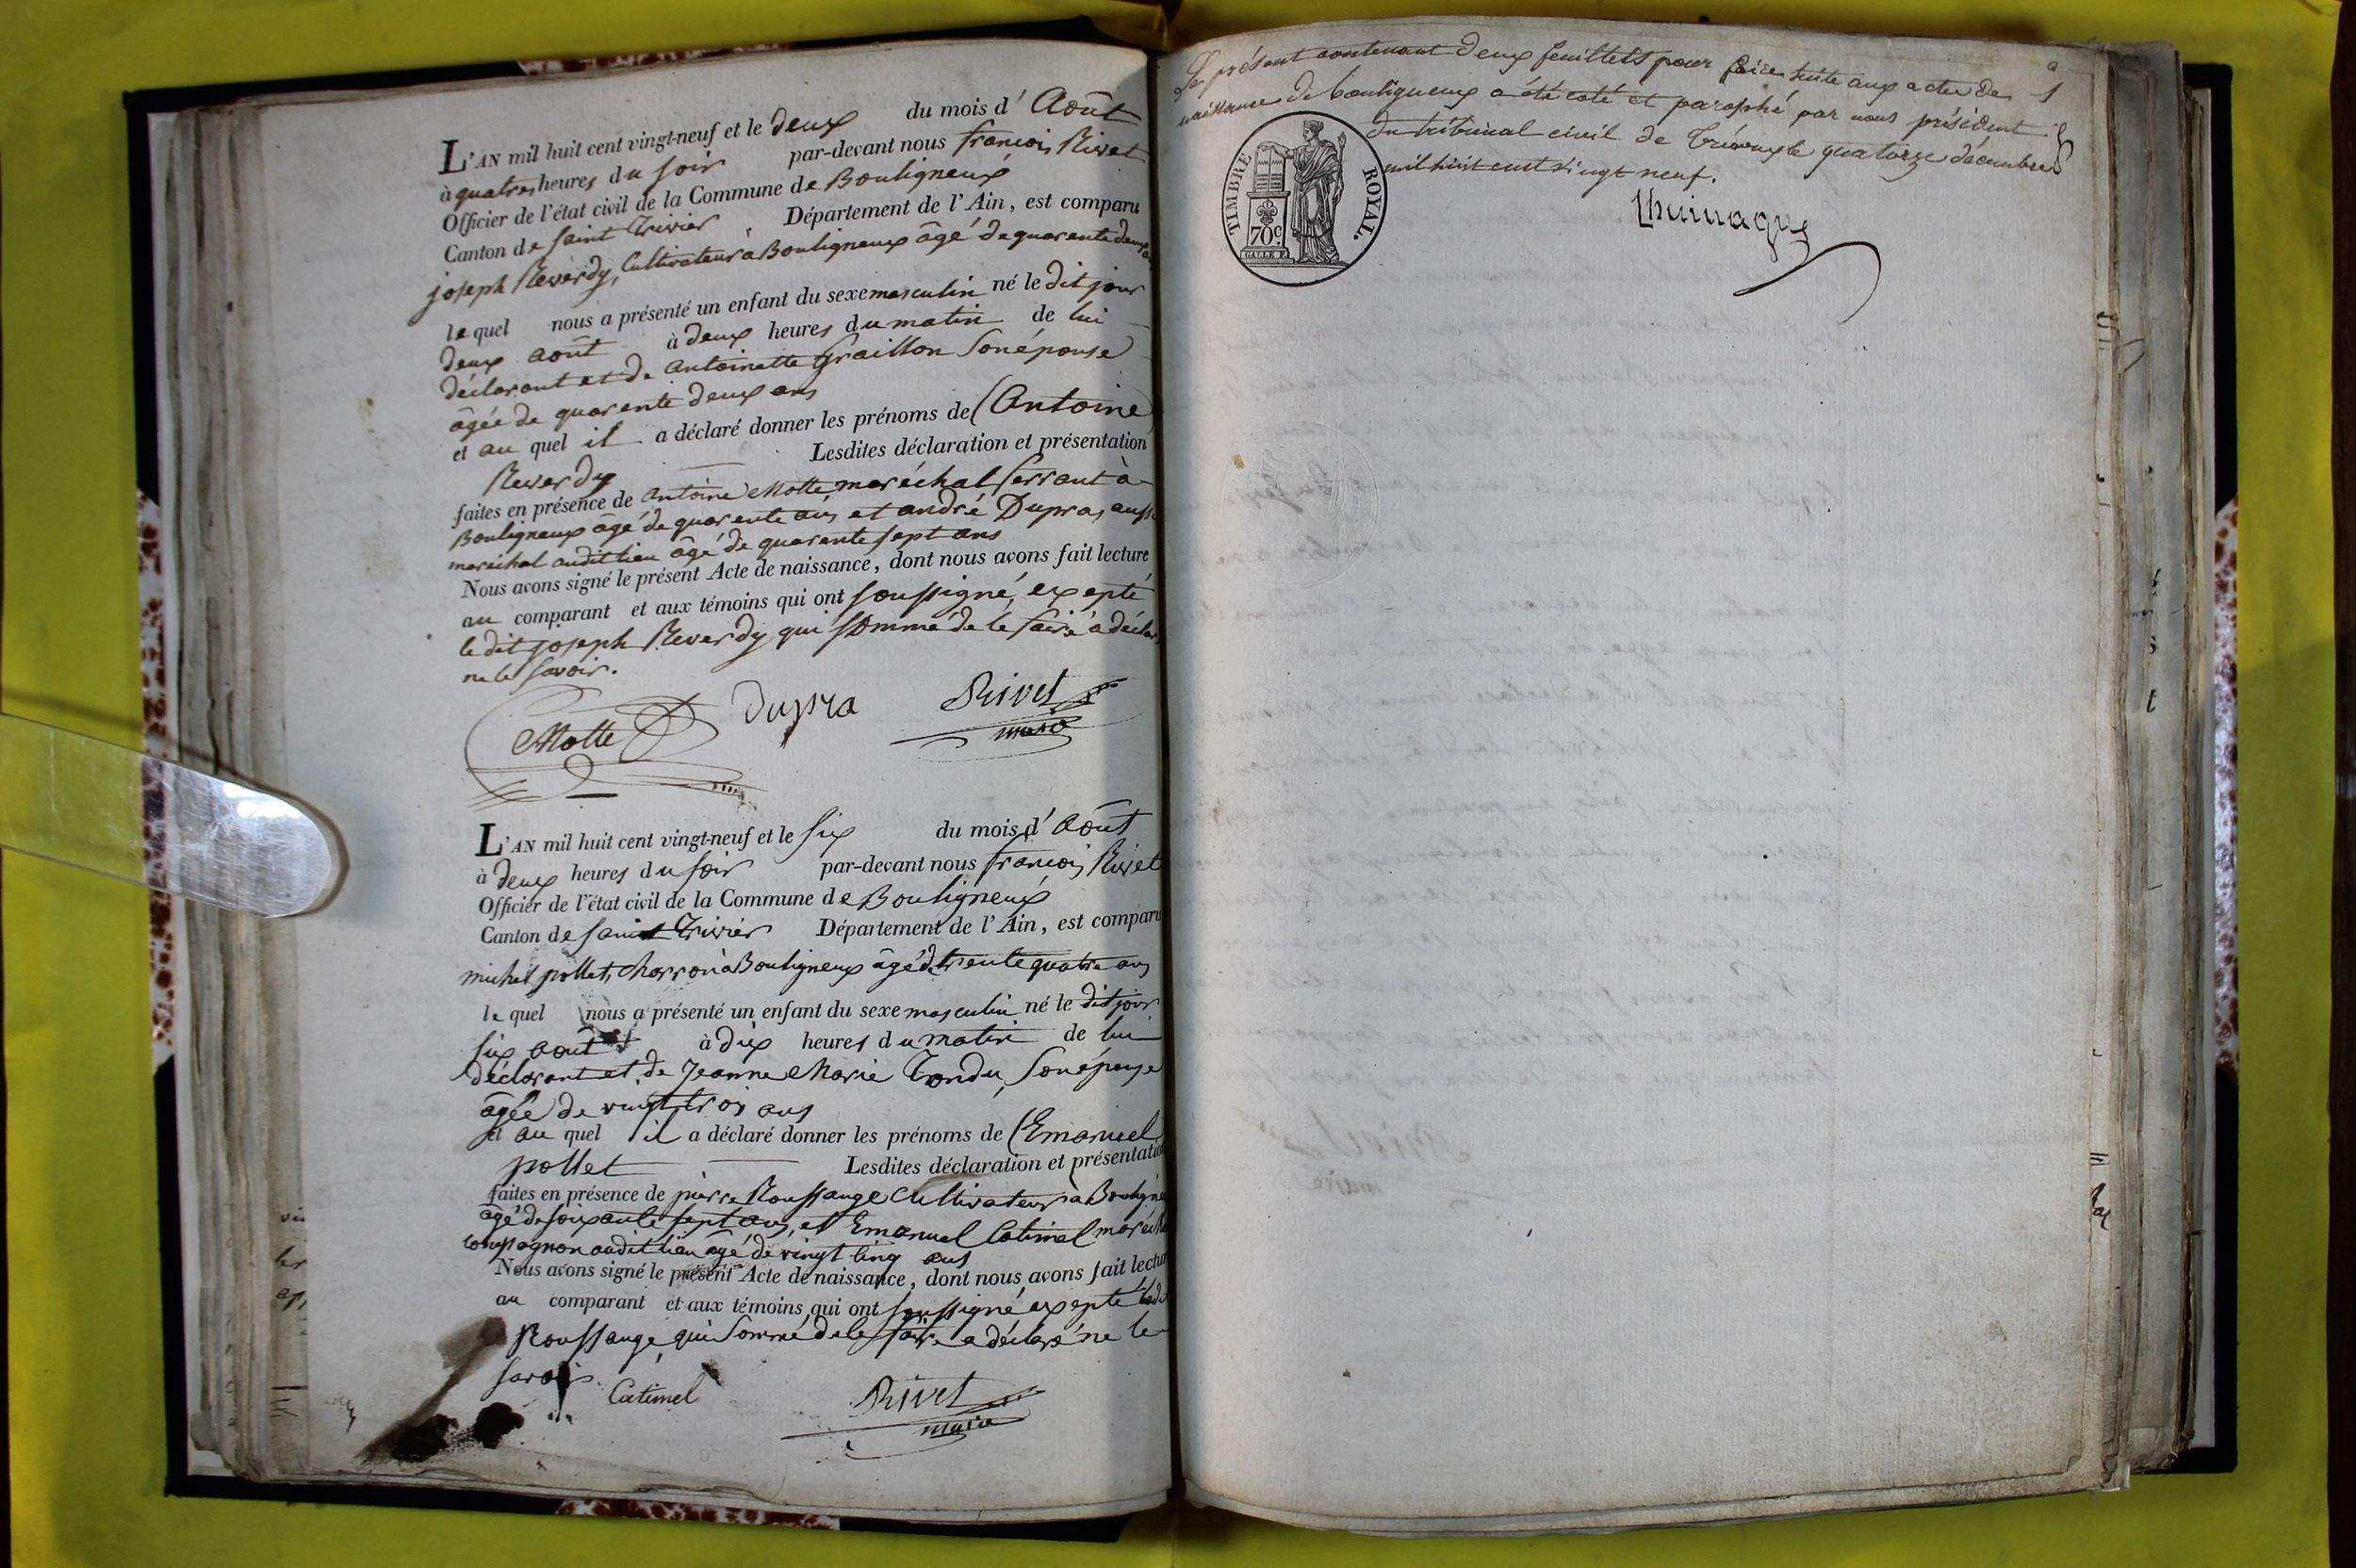 L'AN mil huit cent vingt-neuf et le deux du mois d' Août
à quatre heures du soir par-devant nous françois Rivet
Officier de l'état civil de la Commune de Bouligneux
Canton de saint Trivier Département de l'Ain, est comparu
joseph Reverdy, Cultivateur a Bouligneux âgé de quarente deux
le quel nous a présenté un enfant du sexe masculin né le dit jour
deux août à deux heures du matin de lui
déclarant et de antoinette Graillon son épouse
âgée de quarente deux ans
et au quel il a déclaré donner les prénoms de (Antoine
Reverdy Lesdites déclaration et présentation
faites en présence de antoine Motte maréchal ferrant à
Bouligneux âgé de quarente ans et andré Dupra, aussi
maréchal audit lieu âgé de quarente sept ans
Nous avons signé le présent Acte de naissance, dont nous avons fait lecture
au comparant et aux témoins qui ont soussigné, expepté
le dit joseph Reverdy qui sommé de le faire a déclaré
ne le savoir.
Motte Dupra Rivet
maire
L'AN mil huit cent vingt-neuf et le six du mois d' Août
à deux heures du soir par-devant nous françois Rivet
Officier de l'état civil de la Commune de Bouligneux
Canton de saint Trivier Département de l'Ain, est comparu
michel pollet, charron à Bouligneux âgé de trente quatre ans
le quel nous a présenté un enfant du sexe masculin né le dit jour
six août à dix heures du matin de lui
déclarant et de Jeanne Marie Tondu, son épouse
âgée de vingt trois ans
et au quel il a déclaré donner les prénoms de (Emanuel
pollet Lesdites déclaration et présentation
faites en présence de pierre Roussange Cultivateur à Bouligne
âgé de soixante sept ans, et Emanuel Catimel maréchal
compagnon audit lieu âgé de vingt cinq ans
Nous avons signé le présent Acte de naissance, dont nous avons fait lectur
au comparant et aux témoins qui ont soussigné expepté ledit
Roussange qui sommé de le faire a déclaré ne le
savoir.
Catimel Rivet
maire
Le présent contenant deux feuillets pour faire suite aux actes de 1
naissance de bouligneux a été coté et paraphé par nous président
du tribunal civil de Trévoux le quatorze décembre
mil huit cent vingt neuf.
TIMBRE ROYAL.
70c.